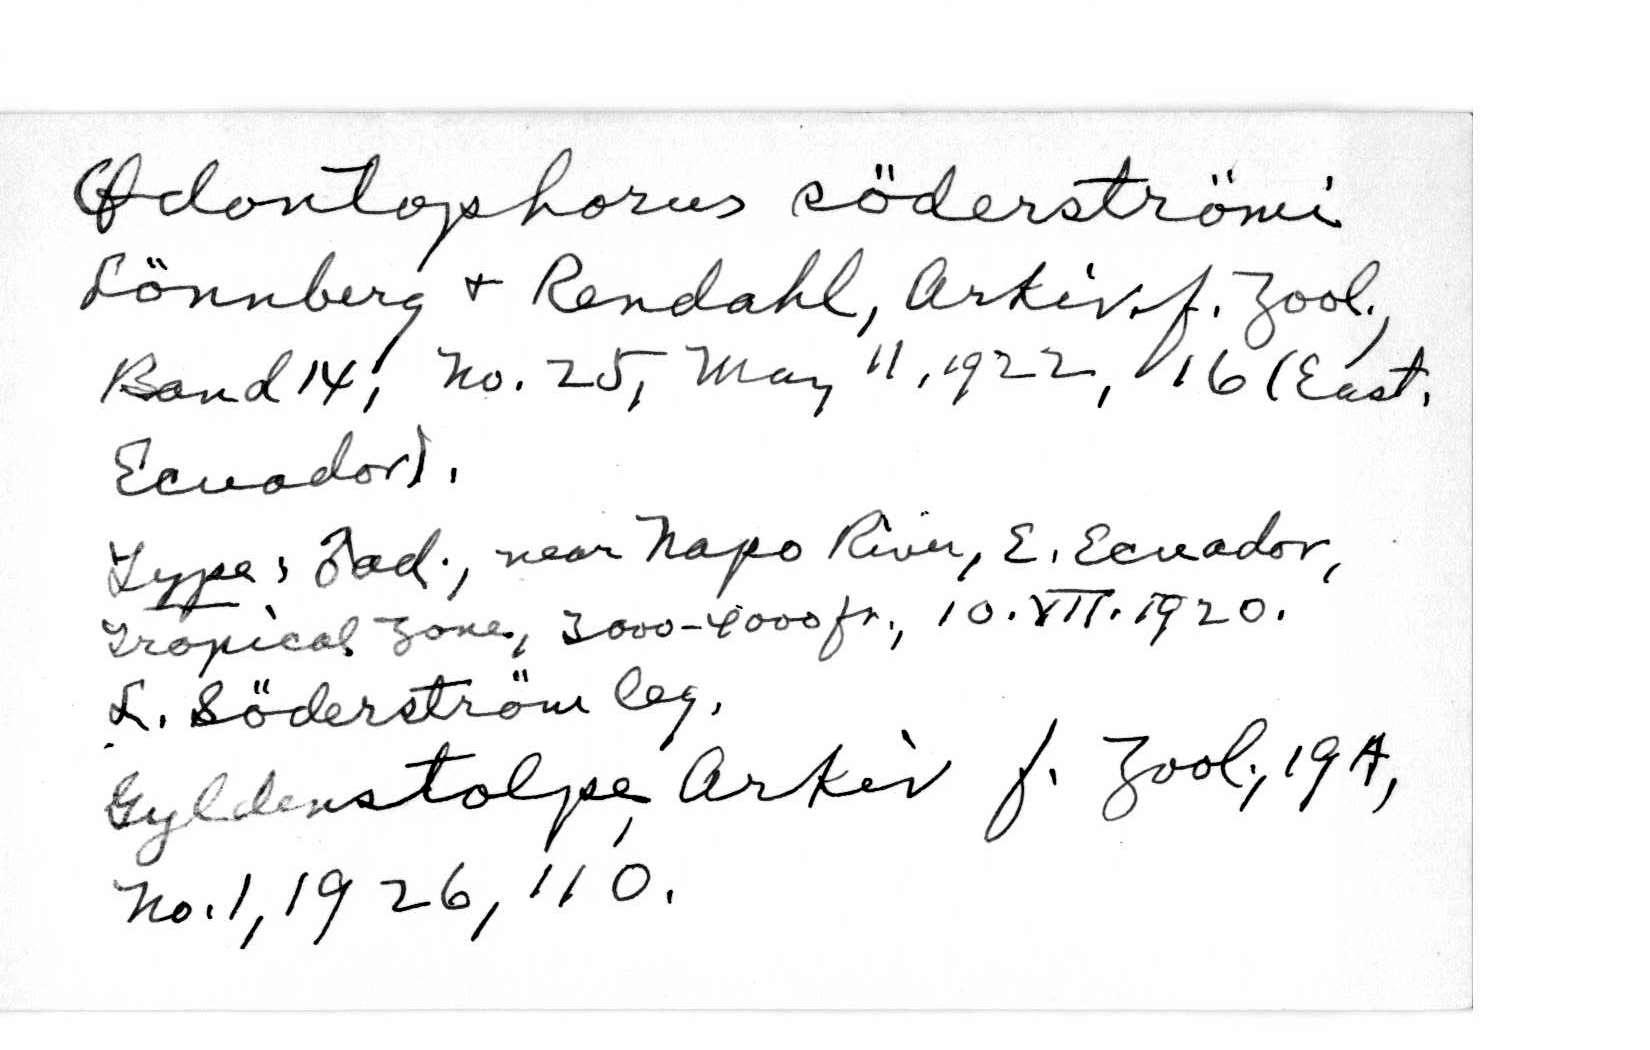 Odontophorus söderströmi
Lönnberg + Rendahl, Arkiv. f. Zool.,
Band 14, No. 25, May 11, 1922, 16 (East.
Ecuador).
Type: ad., near Napo River, E. Ecuador,
Tropical Zone, 3000-4000 ft., 10.VII.1920.
L. Söderström leg.
Gyldenstolpe, Arkiv f. Zool., 19A,
No. 1, 1926, 110.